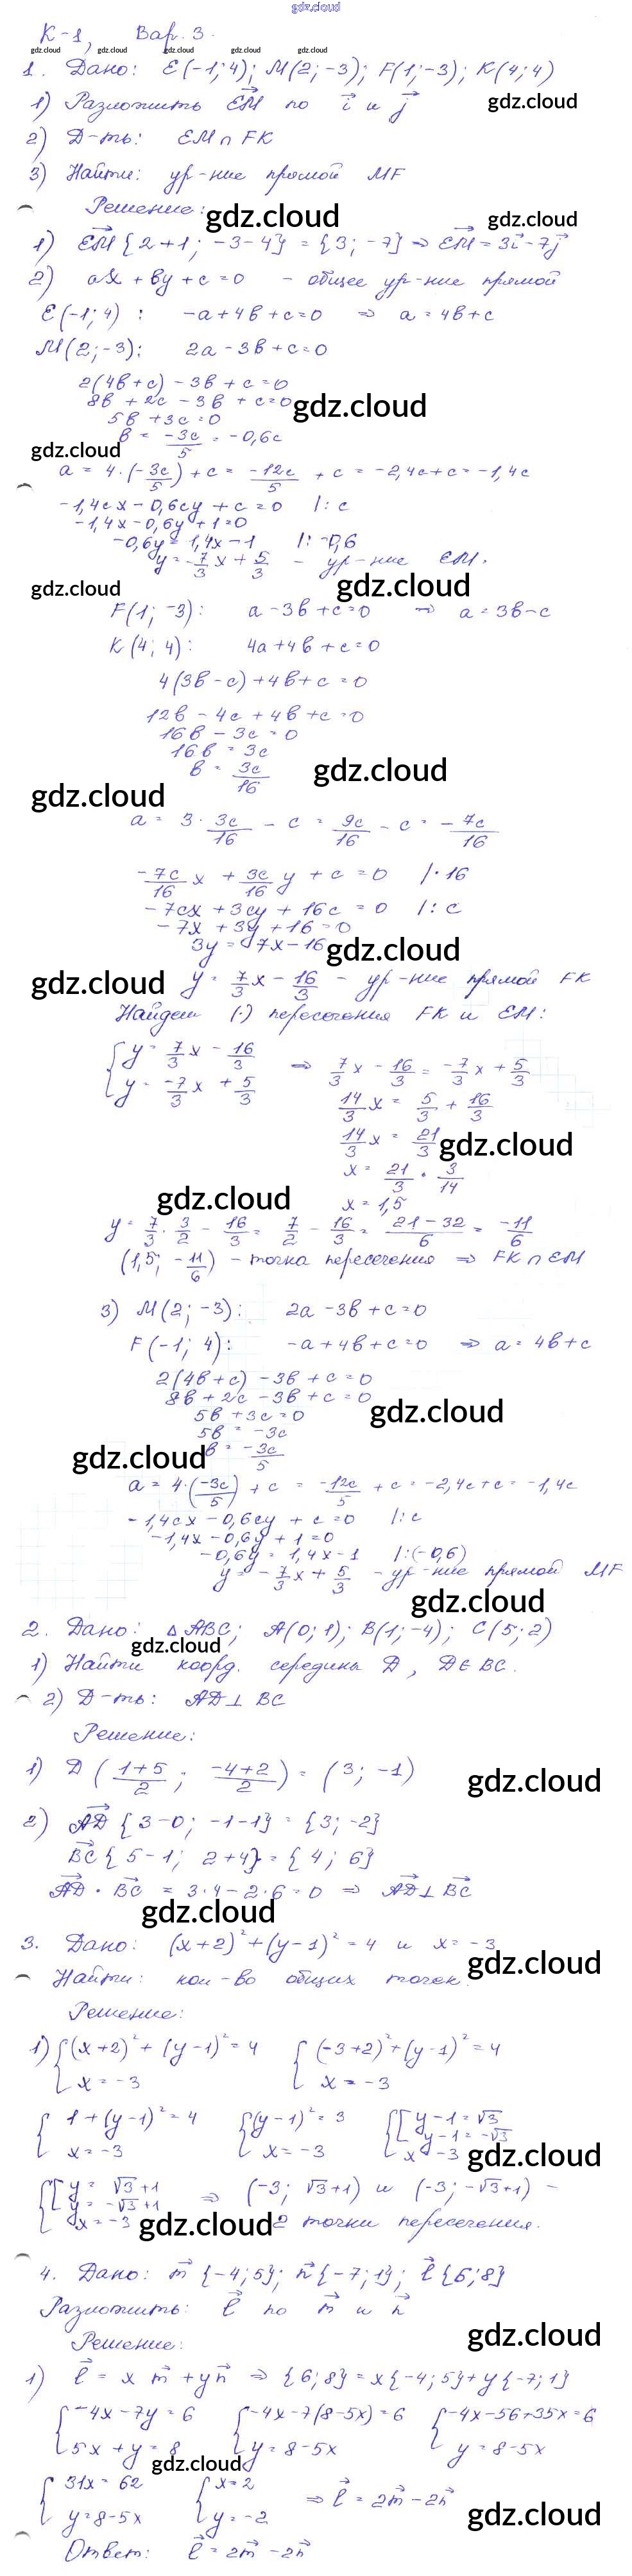 gdz.cloud
К-1, Вар. 3.
gdz.cloud gdz.cloud gdz.cloud gdz.cloud
1. Дано: E(-1;4); M(2;-3); F(1;-3); K(4;4)
gdz.cloud
1) Разложить EM⃗ по i⃗ и j⃗
2) Д-ть: EM ∩ FK
3) Найти: ур-ние прямой MF
Решение:
gdz.cloud gdz.cloud
1) EM⃗ {2+1; -3-4} = {3; -7} ⇒ EM⃗ = 3i⃗ - 7j⃗
2) ax + by + c = 0 - общее ур-ние прямой
E(-1;4): -a+4b+c=0 ⇒ a = 4b+c
M(2;-3): 2a-3b+c=0
2(4b+c) - 3b + c = 0
8b + 2c - 3b + c = 0
gdz.cloud
5b + 3c = 0
b = -3c/5 = -0,6c
gdz.cloud
a = 4·(-3c/5) + c = -12c/5 + c = -2,4c+c = -1,4c
-1,4cx - 0,6cy + c = 0 |:c
-1,4x - 0,6y + 1 = 0
-0,6y = 1,4x - 1 |: -0,6
y = -7/3 x + 5/3 - ур-ние EM.
gdz.cloud gdz.cloud
F(1; -3): a-3b+c=0 ⇒ a = 3b-c
K(4; 4): 4a+4b+c=0
4(3b-c)+4b+c=0
12b - 4c + 4b + c = 0
16b - 3c = 0
16b = 3c
b = 3c/16
gdz.cloud
gdz.cloud
a = 3 · 3c/16 - c = 9c/16 - c = -7c/16
-7c/16 x + 3c/16 y + c = 0 |·16
-7cx + 3cy + 16c = 0 |:c
-7x + 3y + 16 = 0
3y = 7x-16
gdz.cloud
gdz.cloud
y = 7/3 x - 16/3 - ур-ние прямой FK
Найдем (·) пересечения FK и EM:
{ y = 7/3 x - 16/3 ⇒ 7/3 x - 16/3 = -7/3 x + 5/3
{ y = -7/3 x + 5/3 14/3 x = 5/3 + 16/3
14/3 x = 21/3
gdz.cloud
x = 21/3 · 3/14
x = 1,5
gdz.cloud
y = 7/3 · 3/2 - 16/3 = 7/2 - 16/3 = 21-32/6 = -11/6
(1,5; -11/6) - точка пересечения ⇒ FK ∩ EM
3) M(2; -3): 2a-3b+c=0
F(-1; 4): -a+4b+c=0 ⇒ a = 4b+c
2(4b+c) - 3b + c = 0
8b + 2c - 3b + c = 0
5b + 3c = 0
gdz.cloud
5b = -3c
b = -3c/5
gdz.cloud
a = 4·(-3c/5) + c = -12c/5 + c = -2,4c+c = -1,4c
-1,4cx - 0,6cy + c = 0 |:c
-1,4x - 0,6y + 1 = 0
-0,6y = 1,4x-1 |:(-0,6)
y = -7/3 x + 5/3 - ур-ние прямой MF
gdz.cloud
2. Дано: △ABC; A(0;1); B(1;-4); C(5;2)
gdz.cloud
1) Найти коорд. середины D, D∈BC.
2) Д-ть: AD ⊥ BC
Решение:
1) D (1+5/2; -4+2/2) = (3; -1)
gdz.cloud
2) AD⃗ {3-0; -1-1} = {3; -2}
BC⃗ {5-1; 2+4} = {4; 6}
AD⃗ · BC⃗ = 3·4-2·6=0 ⇒ AD⃗ ⊥ BC⃗
gdz.cloud
3. Дано: (x+2)² + (y-1)² = 4 и x = -3
gdz.cloud
Найти: кол-во общих точек.
Решение:
1) { (x+2)² + (y-1)² = 4 { (-3+2)² + (y-1)² = 4
{ x = -3 { x = -3
{ 1+(y-1)² = 4 { (y-1)² = 3 { [ y-1 = √3
{ x = -3 { x = -3 [ y-1 = -√3
x = -3
gdz.cloud
{ [ y = √3+1 ⇒ (-3; √3+1) и (-3; -√3+1) -
[ y = -√3+1
x = -3 2 точки пересечения.
gdz.cloud
4. Дано: m⃗ {-4;5}; n⃗ {-7;1}; l⃗ {6;8}
Разложить: l⃗ по m⃗ и n⃗
gdz.cloud
Решение:
1) l⃗ = x m⃗ + y n⃗ ⇒ {6;8} = x{-4;5} + y{-7;1}
{ -4x-7y=6 { -4x-7(8-5x)=6 { -4x-56+35x=6
{ 5x+y=8 { y=8-5x { y=8-5x
gdz.cloud
{ 31x=62 { x=2 ⇒ l⃗ = 2m⃗ - 2n⃗
{ y=8-5x { y=-2
gdz.cloud
Ответ: l⃗ = 2m⃗ - 2n⃗